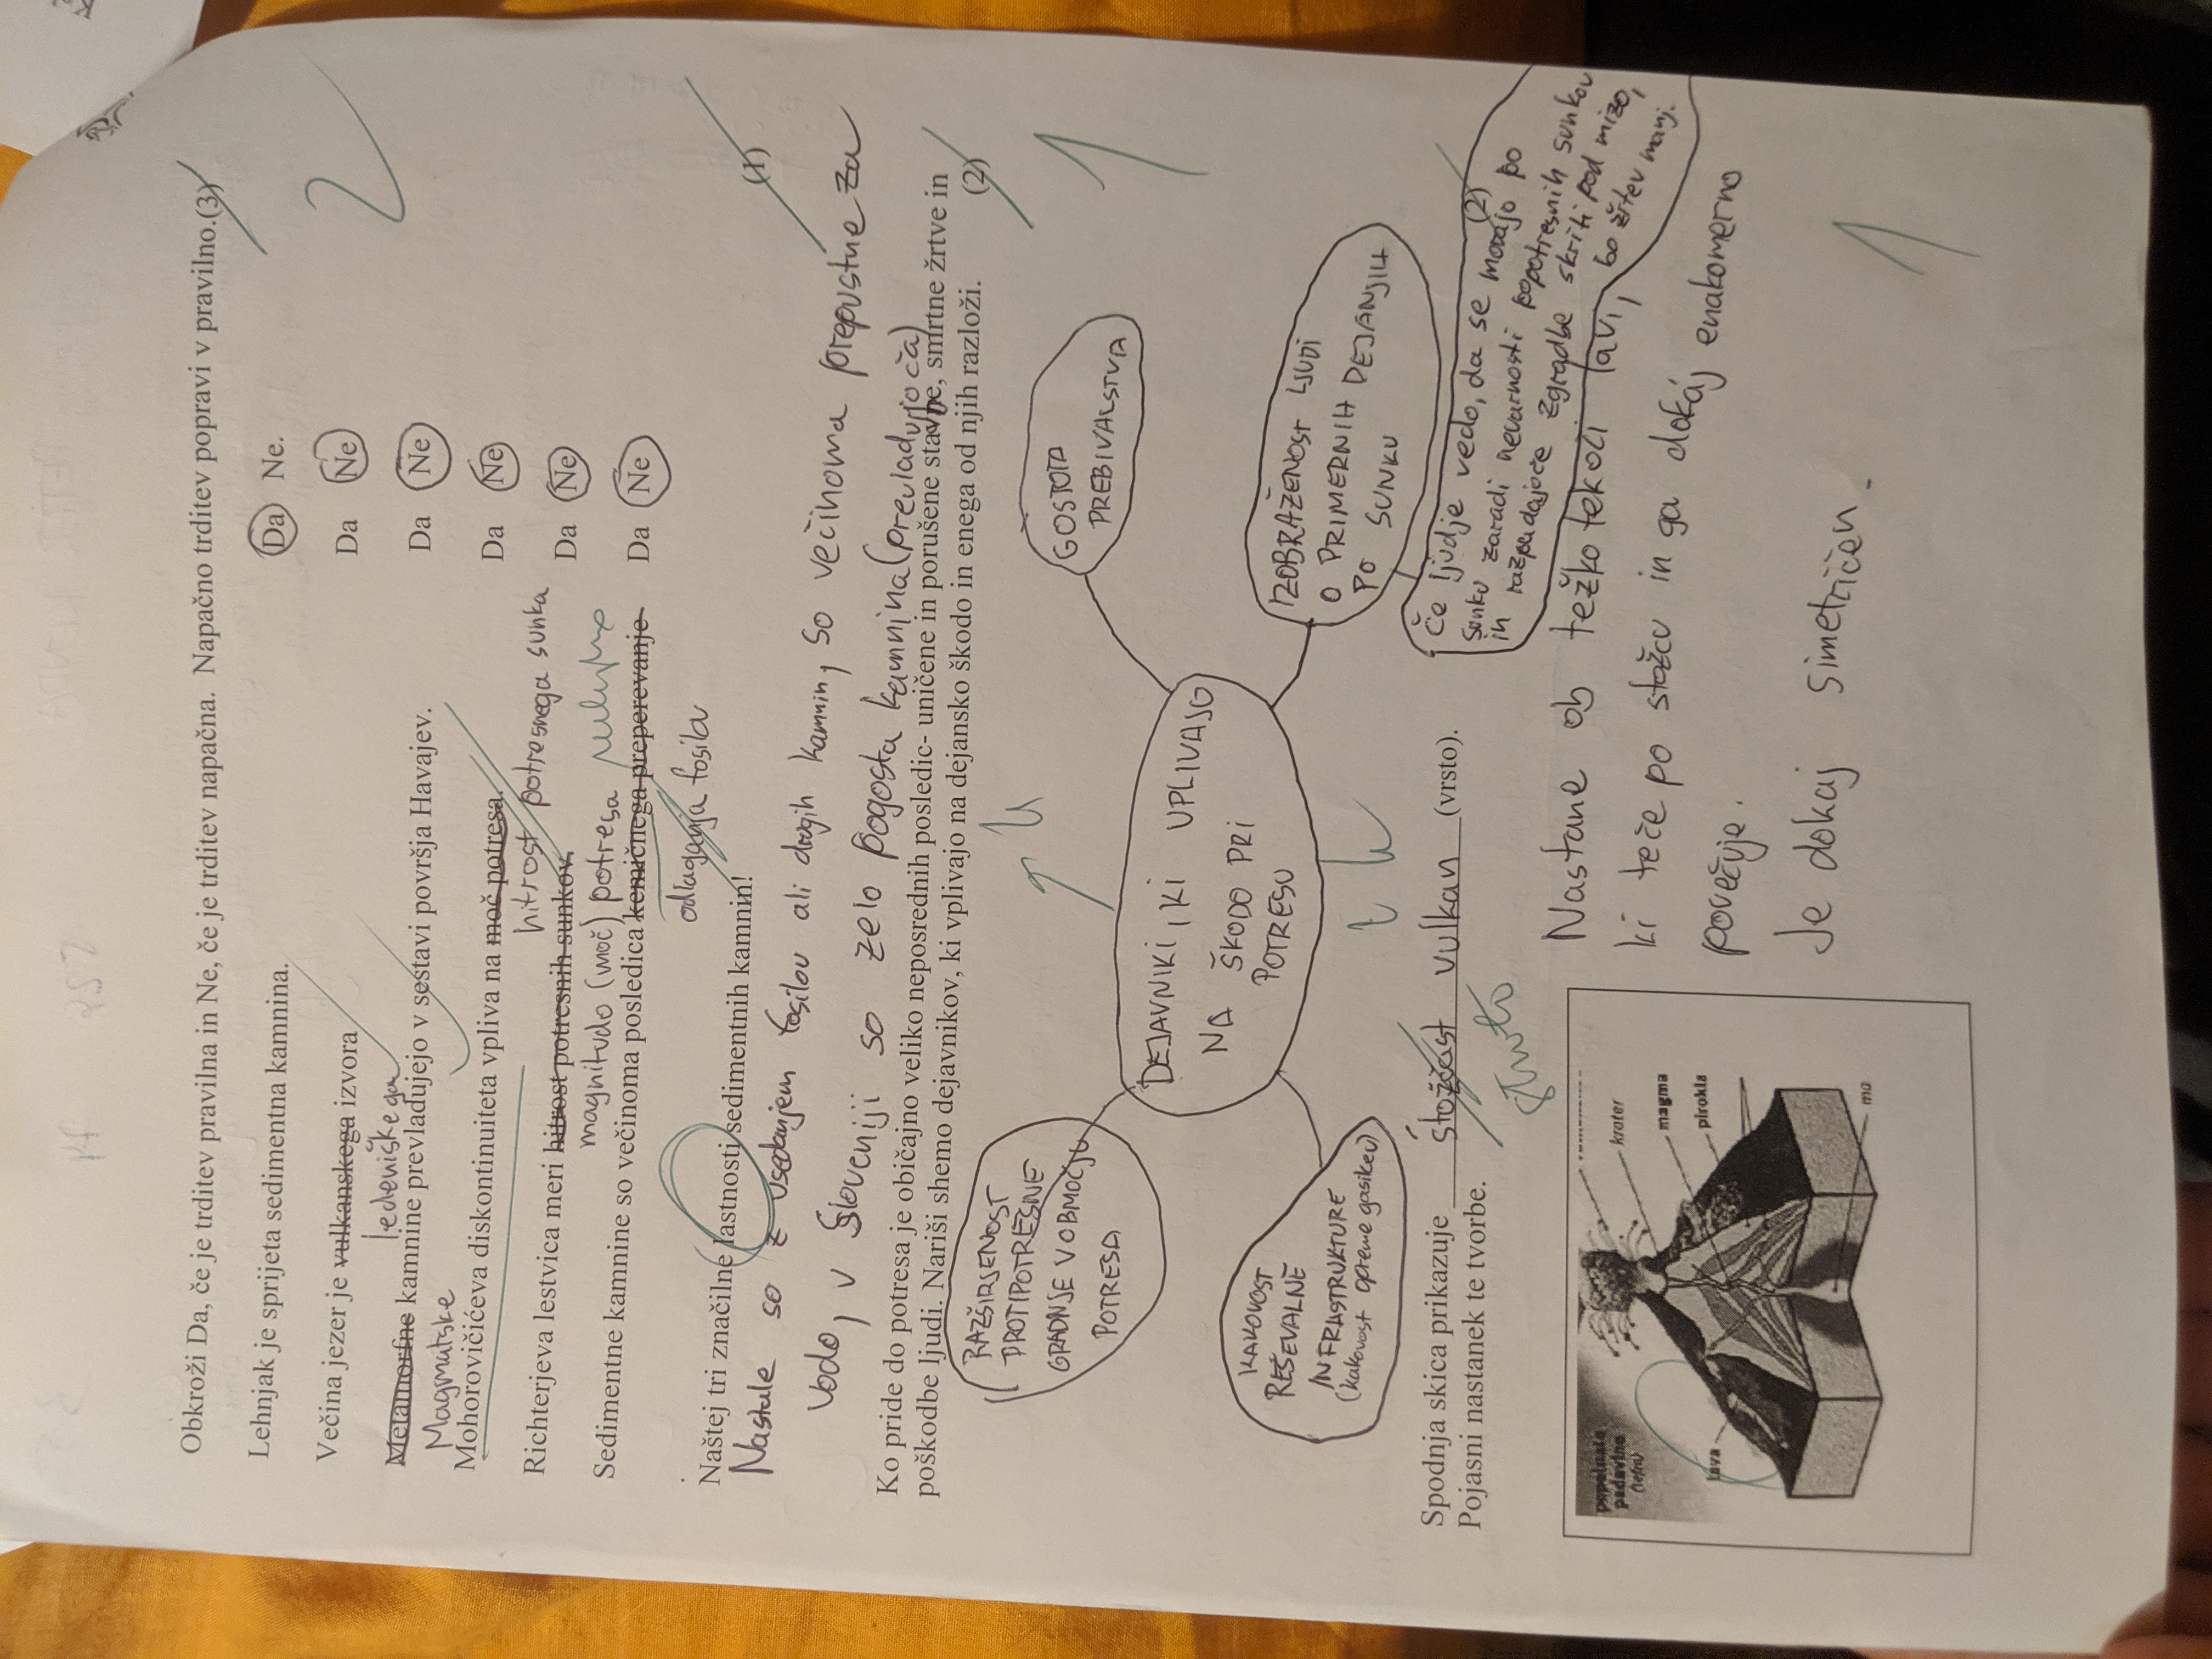 Obkroži Da, če je trditev pravilna in Ne, če je trditev napačna. Napačno trditev popravi v pravilno.(3)
Lehnjak je sprijeta sedimentna kamnina. Da Ne.
Večina jezer je vulkanskega izvora Da Ne
ledeniškega
Metamorfne kamnine prevladujejo v sestavi površja Havajev. Da Ne
Magmatske
Mohorovičićeva diskontinuiteta vpliva na moč potresa. Da Ne
hitrost potresnega sunka
Richterjeva lestvica meri hitrost potresnih sunkov. Da Ne
magnitudo (moč) potresa
Sedimentne kamnine so večinoma posledica kemičnega preperevanje Da Ne
odlaganja fosilov
Naštej tri značilne lastnosti sedimentnih kamnin! (1)
Nastale so z usedanjem fosilov ali drugih kamnin, so večinoma prepustne za
vodo, v Sloveniji so zelo pogosta kamnina (prevladujoča)
Ko pride do potresa je običajno veliko neposrednih posledic- uničene in porušene stavbe, smrtne žrtve in
poškodbe ljudi. Nariši shemo dejavnikov, ki vplivajo na dejansko škodo in enega od njih razloži. (2)
2
RAZŠIRJENOST
PROTIPOTRESNE
GRADNJE V OBMOČJU
POTRESA
GOSTOTA
PREBIVALSTVA
1
DEJAVNIKI, KI VPLIVAJO
NA ŠKODO PRI
POTRESU
KAKOVOST
REŠEVALNE
INFRASTRUKTURE
(kakovost opreme gasilcev)
IZOBRAŽENOST LJUDI
O PRIMERNIH DEJANJIH
PO SUNKU
Spodnja skica prikazuje stožčast vulkan (vrsto).
Pojasni nastanek te tvorbe. (2)
strato
če ljudje vedo, da se morajo po
sunku zaradi nevarnosti popotresnih sunkov
in razpadajoče zgradbe skriti pod mizo,
bo žrtev manj.
Nastane ob težko tekoči lavi,
ki teče po stožcu in ga dokaj enakomerno
povečuje.
Je dokaj simetričen.
1
popelnate
padavine
(tefra)
krater
magma
pirokla
lava
ma